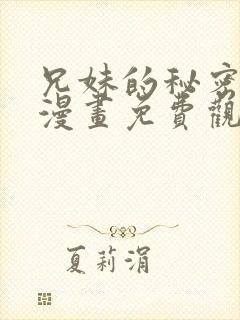 兄妹的秘密
漫畫免費觀
夏莉涓